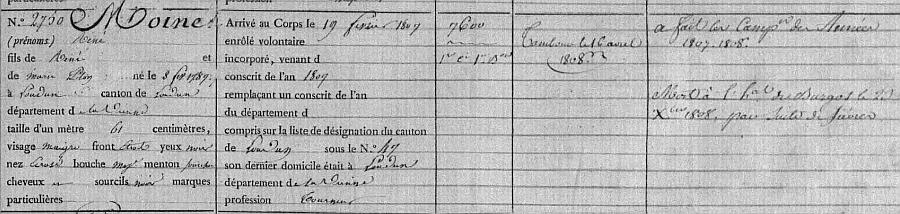 N.° 2750 Moine
(prénoms) René
fils de René et
de marie né le 8 1787
à Loudun canton de Loudun
département de la Vienne
taille d'un mètre 61 centimètres,
visage maigre front étroit yeux noir
nez écrasé bouche moy.ne menton pointu
cheveux et sourcils noir marques
particulières
profession
Arrivé au Corps le 19 février 1807
enrôlé volontaire
incorporé, venant d
conscrit de l'an 1807
remplaçant un conscrit de l'an
du département d
compris sur la liste de désignation du canton
de Loudun sous le N.° 47
son dernier domicile était à Loudun
département de la Vienne
profession Tourneur
7600
Tambour le 16 avril
1808
a fait les Camp.es des Années
1807. 1808.
Mort à l'h.al de Burgos le
X.bre 1808, par suite de fièvre